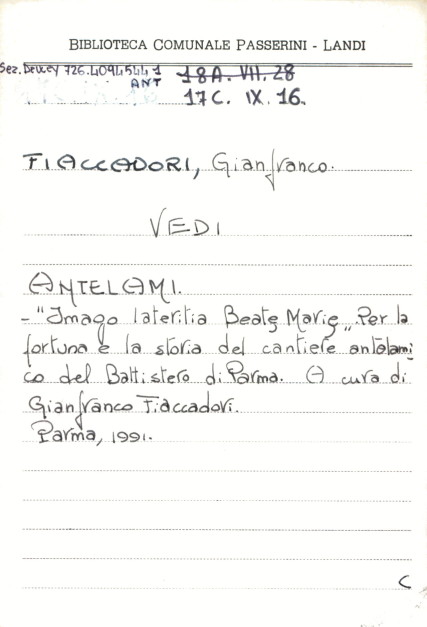 BIBLIOTECA COMUNALE PASSERINI - LANDI
Sez. Dewey 726.4094544 1 18A. VII. 28
ANT 17C. IX. 16.
FIACCADORI, Gianfranco.
VEDI
ANTELAMI.
- "Imago lateritia Beate Marie„. Per la
fortuna e la storia del cantiere antelami
co del Battistero di Parma. A cura di
Gianfranco Fiaccadori.
Parma, 1991.
C